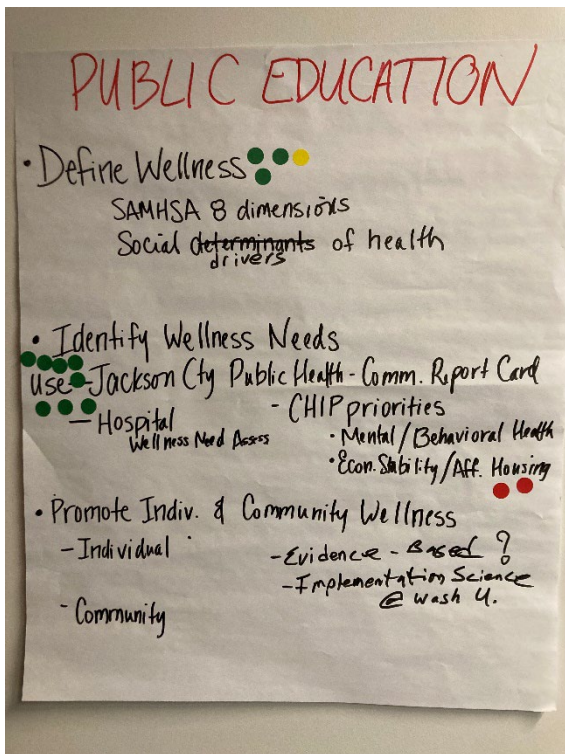 PUBLIC EDUCATION
• Define Wellness
SAMHSA 8 dimensions
Social determinants of health
drivers
• Identify Wellness Needs
use - Jackson Cty Public Health - Comm. Report Card
— Hospital
Wellness Need Assess
- CHIP priorities
• Mental/Behavioral Health
• Econ. Stability/Aff. Housing
• Promote Indiv. & Community Wellness
- Individual
- Community
- Evidence - Based ?
- Implementation Science
@ Wash U.